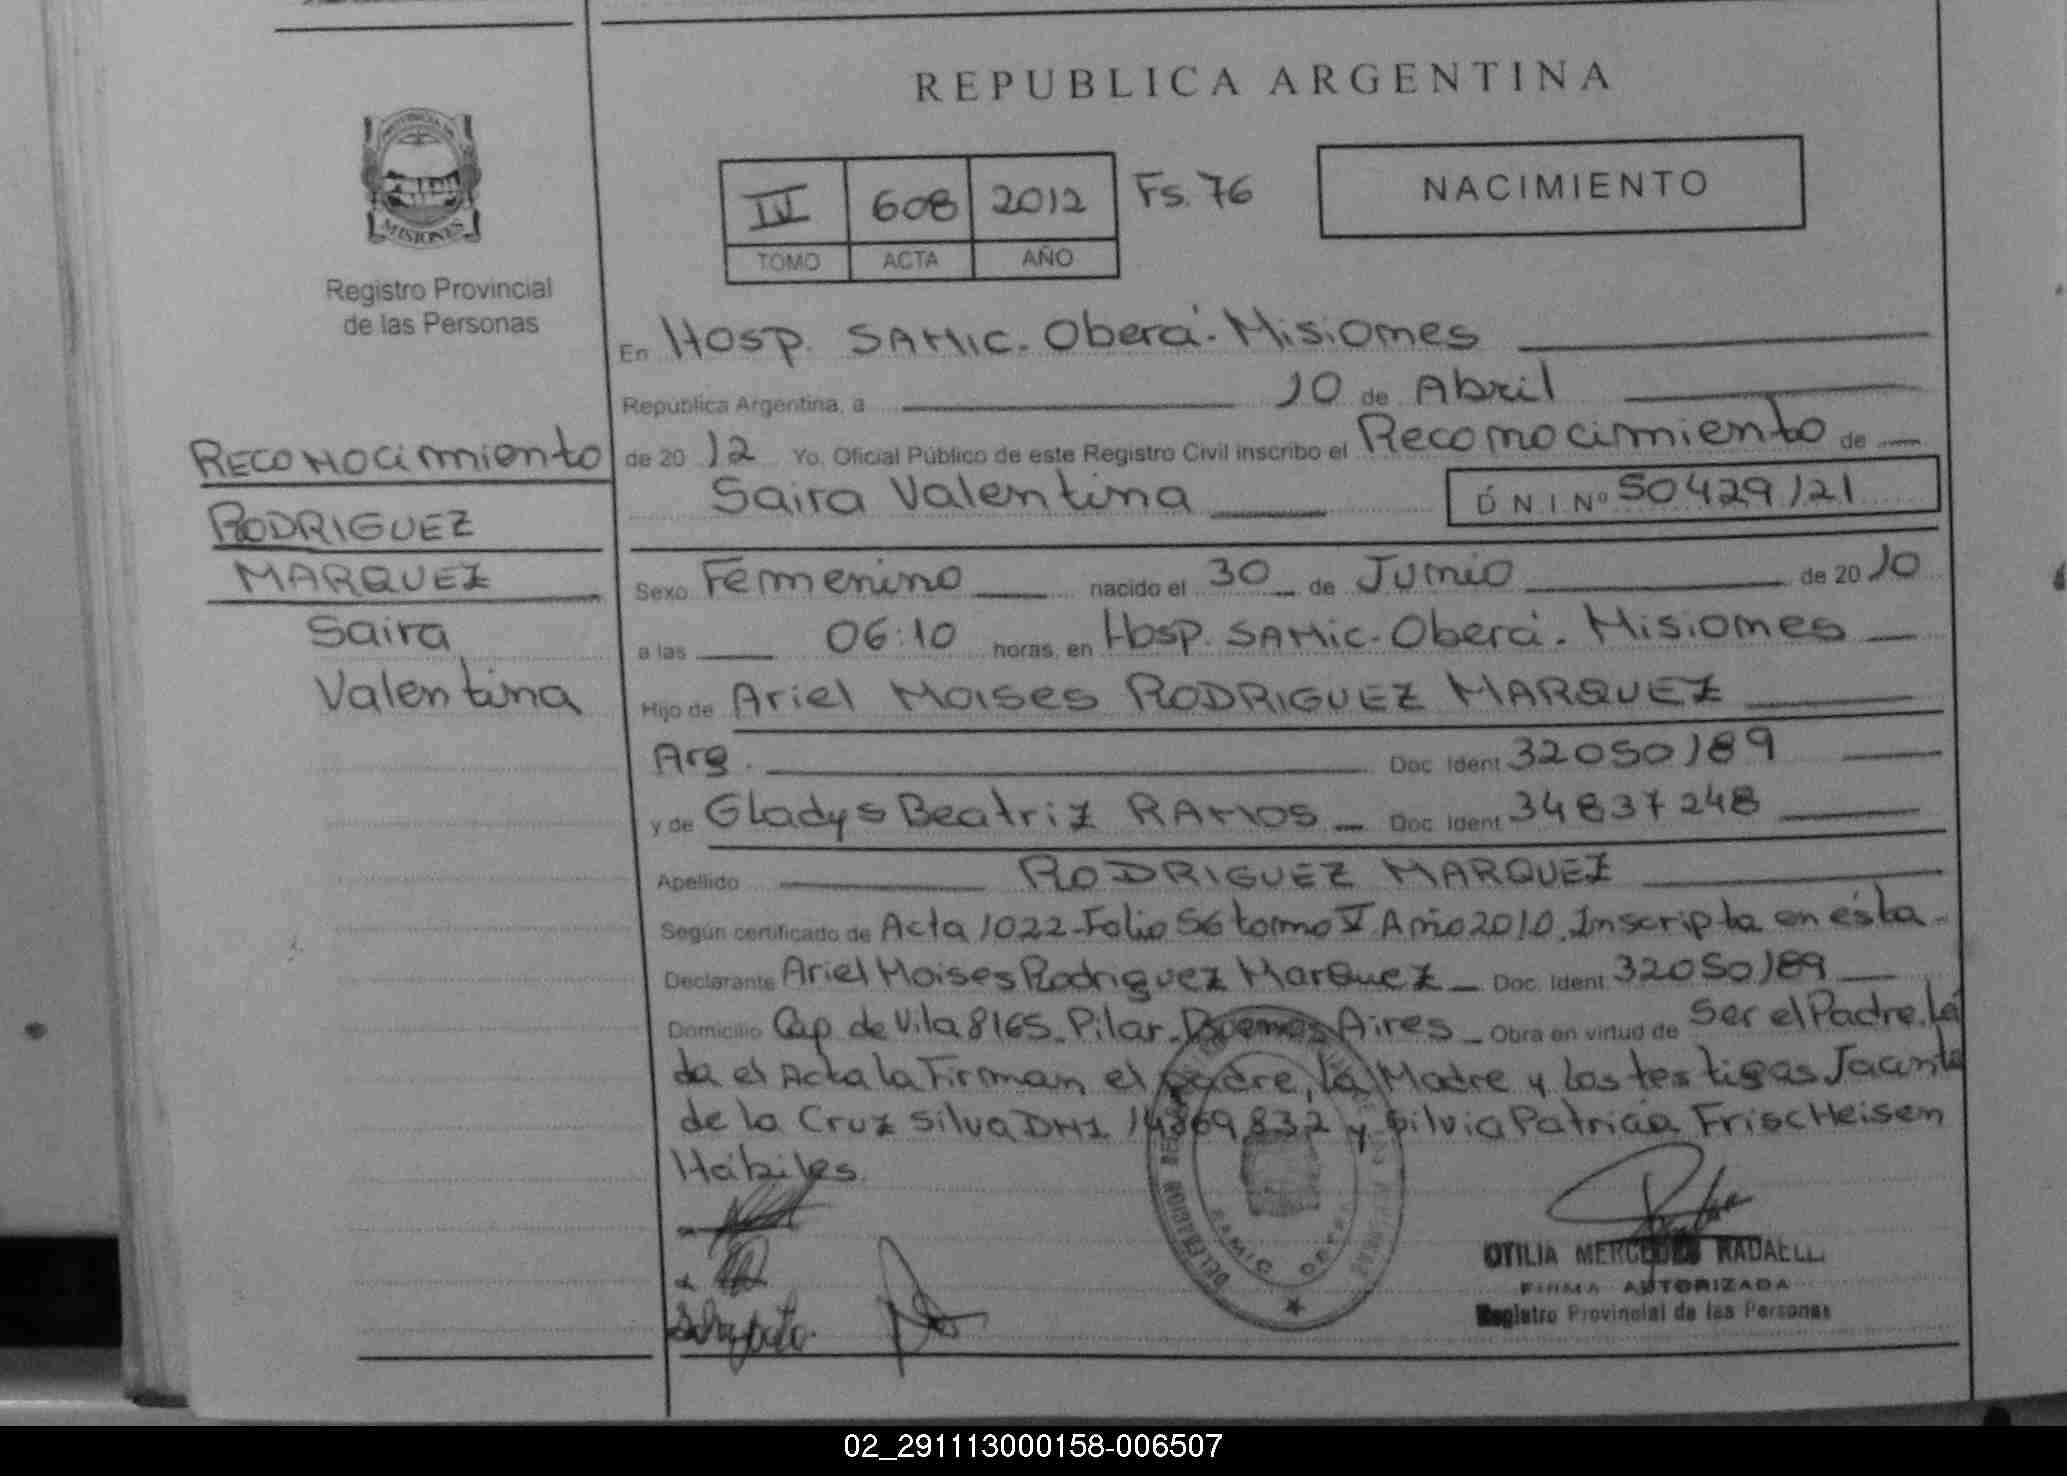 REPUBLICA ARGENTINA
PROVINCIA DE
MISIONES
Registro Provincial
de las Personas
IV 608 2012 Fs. 76
TOMO ACTA AÑO
NACIMIENTO
En Hosp. SAMIC. Oberá. Misiones
República Argentina, a 10 de Abril
de 2012 Yo, Oficial Público de este Registro Civil inscribo el Reconocimiento de
Saira Valentina D N I Nº 50429121
Reconocimiento
RODRIGUEZ
MARQUEZ
Saira
Valentina
Sexo Femenino nacido el 30 de Junio de 2010
a las 06:10 horas, en Hosp. SAMIC. Oberá. Misiones
Hijo de Ariel Moises RODRIGUEZ MARQUEZ
Arg. Doc. Ident 32050189
y de Gladys Beatriz RAMOS Doc. Ident 34837248
Apellido RODRIGUEZ MARQUEZ
Según certificado de Acta 1022 - Folio 56 tomo V Año 2010. Inscripta en ésta.
Declarante Ariel Moises Rodriguez Marquez Doc. Ident 32050189
Domicilio Cap. de Vila 8165. Pilar. Buenos Aires Obra en virtud de Ser el Padre. Leí
da el Acta la Firman el padre, la Madre y los testigos Jacinta
de la Cruz Silva DNI 14869832 y Silvia Patricia Frischeisen
Hábiles.
DELEGACION
SAMIC OBERA
OTILIA MERCEDES RADAELLI
FIRMA AUTORIZADA
Registro Provincial de las Personas
02_291113000158-006507